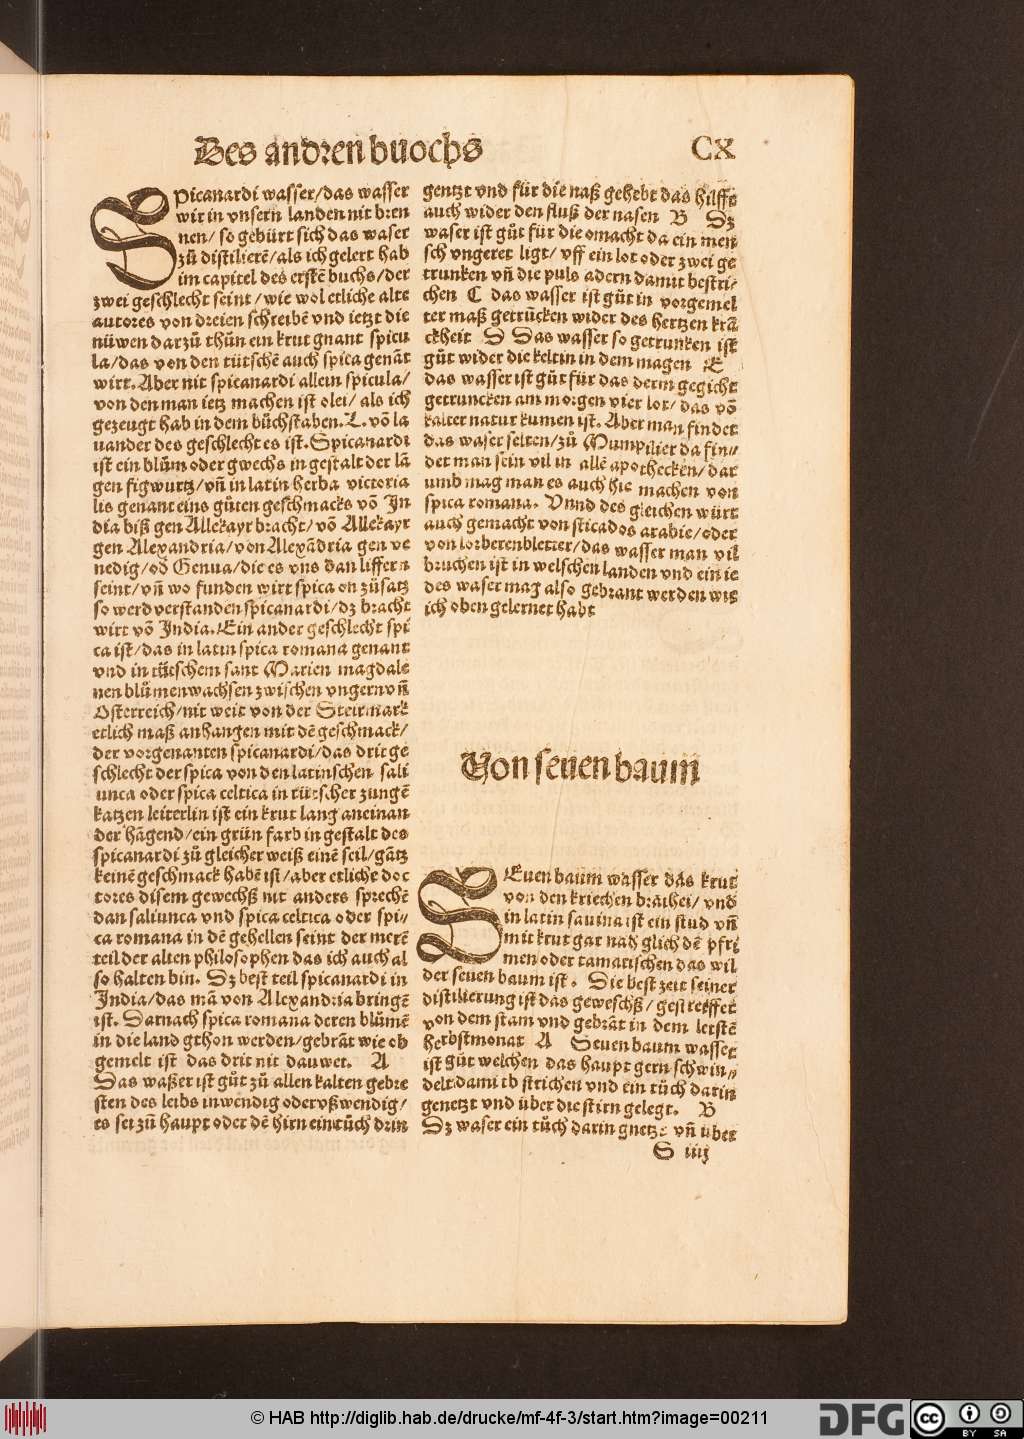 Des andren buochs
CX
SPicanardi wasser/das wasser
wir in vnsern landen nit bren
nen/ so gebürt sich das waser
zů distilierē/als ich gelert hab
im capitel des erstē buchs/der
zwei geschlecht seint/wie wol etliche alte
autores von dreien schreibē vnd ietzt die
nüwen darzů thůn ein krut gnant spicu
la/das von den tütschē auch spica genāt
wirt. Aber nit spicanardi allein spicula/
von den man ietz machen ist olei/ als ich
gezeugt hab in dem bůchstaben. L. vō la
uander des geschlecht es ist. Spicanardi
ist ein blům oder gwechs in gestalt der lā
gen figwurtz/vn̄ in latin herba victoria
lis genant eins gůten geschmacks vō In
dia biß gen Allekayr bracht/vō Allekayr
gen Alexandria/von Alexādria gen ve
nedig/od̄ Genua/die es vns dan liffern
seint/vn̄ wo funden wirt spica on zůsatz
so werd verstanden spicanardi/dz bracht
wirt vō India. Ein ander geschlecht spi
ca ist/das in latin spica romana genant
vnd in tütschem sant Marien magdale
nen blůmen wachsen zwischen vngern vn̄
Osterreich/nit weit von der Steirmark
etlich maß anhangen mit dē geschmack/
der vorgenanten spicanardi/das drit ge
schlecht der spica von den latinschen sali
unca oder spica celtica in tütscher zungē
katzen leiterlin ist ein krut lang aneinan
der hāgend/ein grün farb in gestalt des
spicanardi zů gleicher weiß einē seil/gātz
keinē geschmack habē ist/aber etliche doc
tores disem gewechß nit anders sprechē
dan saliunca vnd spica celtica oder spi⸗
ca romana in dē gehellen seint der merē
teil der alten philosophen das ich auch al
so halten bin. Dz best teil spicanardi in
India/das mā von Alexandria bringē
ist. Darnach spica romana deren blůmē
in die land gthon werden/gebrāt wie ob
gemelt ist das drit nit dauwet. A
Das waßer ist gůt zů allen kalten gebre
sten des leibs inwendig oder vßwendig/
es sei zū haupt oder dē hirn ein tůch drin
gentzt vnd für die naß gehebt das hilfft
auch wider den fluß der nasen B Dz
waser ist gůt für die omacht da ein men
sch vngeret ligt/ vff ein lot oder zwei ge
truncken vn̄ die puls adern damit bestri⸗
chen C das wasser ist gůt in vorgemel
ter maß getrūcken wider des hertzen krā
ckheit D Das wasser so getrunken ist
gůt wider die keltin in dem magen E
das wasser ist gůt für das derm gegicht
getruncken am morgen vier lot/ das vō
kalter natur kumen ist. Aber man findet
das waser selten/zů Mumpilier da fin⸗
det man sein vil in allē apothecken/ dar
umb mag man es auch hie machen von
spica romana. Vnnd des gleichen würt
auch gemacht von sticados arabie/oder
von lorberenbletter/das wasser man vil
bruchen ist in welschen landen vnd ein ie
des waser mag also gebrant werden wie
ich oben gelernet habt
Von seuen baum
SEuen baum wasser das krut
von den kriechen brathei/ vnd
in latin sauina ist ein stud vn̄
mit krut gar nah glich dē pfri
men oder tamarischen das wil
der seuen baum ist. Die best zeit seiner
distilierung ist das geweschß/ gestreiffet
von dem stam vnd gebrāt in dem letstē
herbstmonat A Seuen baum wasser
ist gůt welchen das haupt gern schwin⸗
delt damit b strichen vnd ein tůch darin
genetzt vnd über die stirn gelegt. B
Dz waser ein tůch darin gnetzt vn̄ über
S iiij
© HAB http://diglib.hab.de/drucke/mf-4f-3/start.htm?image=00211
DFG
cc
BY SA